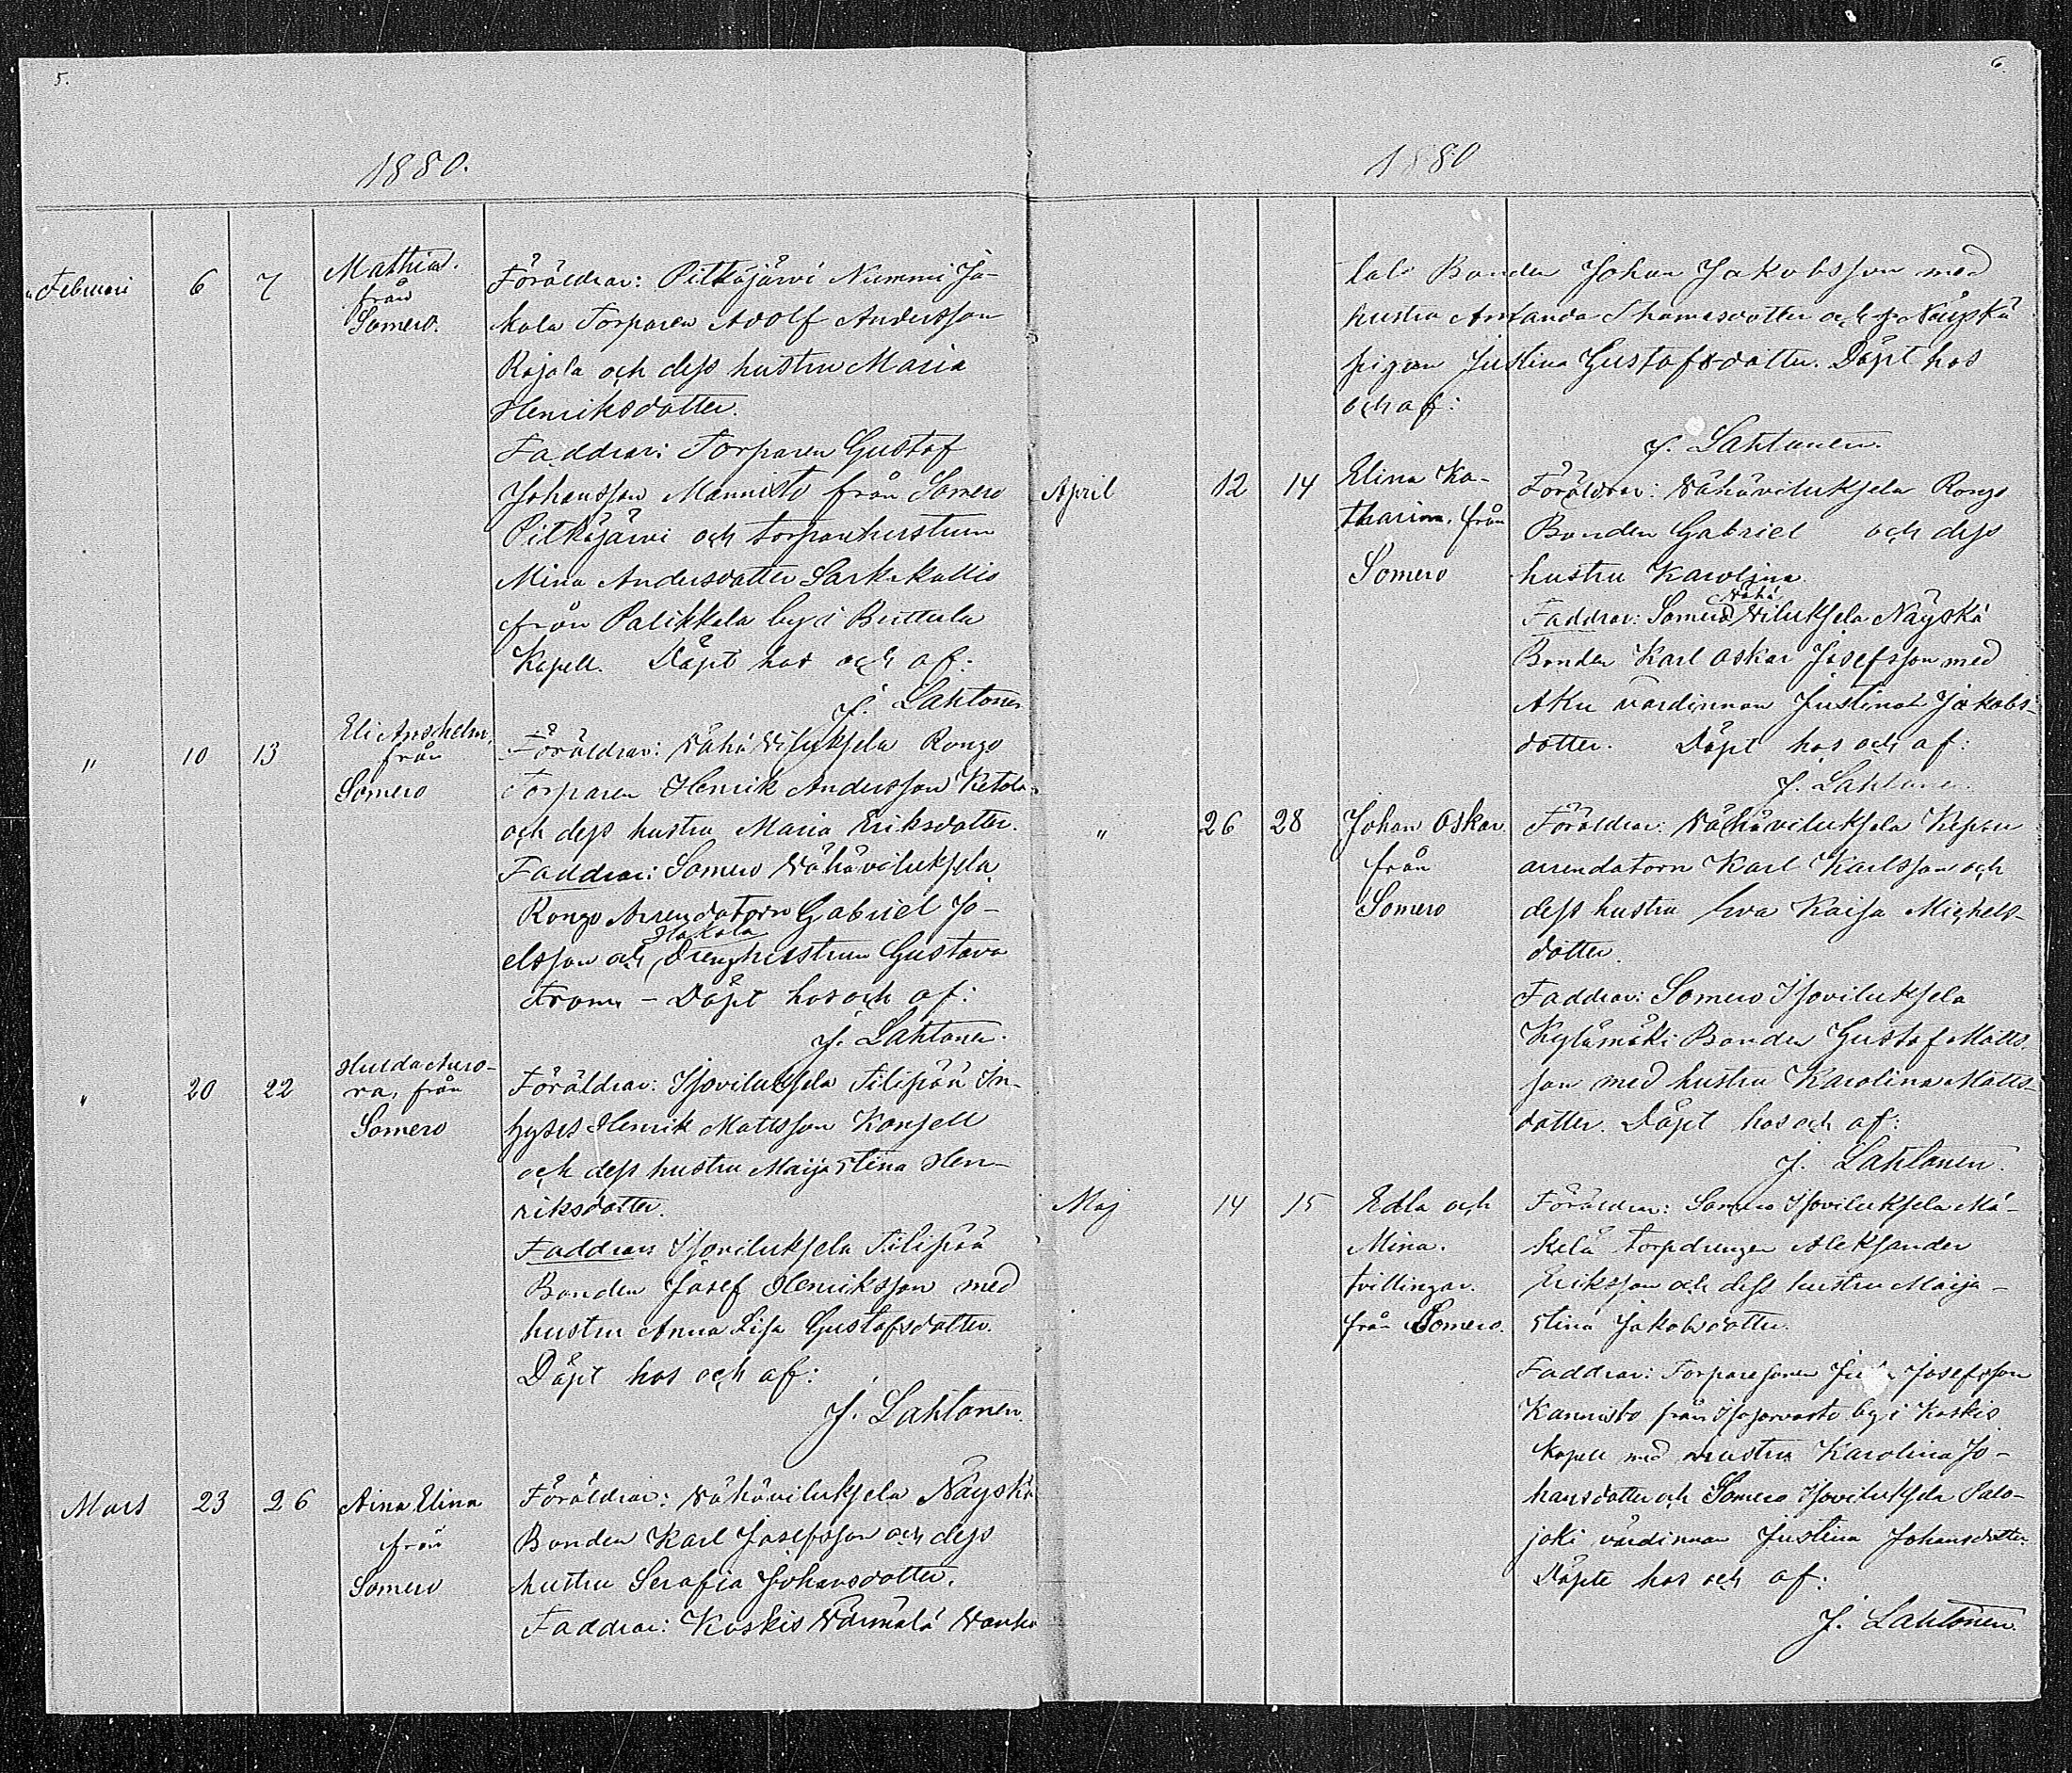 5.
1880.
Februari 6 7 Mathias. från Somero.
Föräldrar: Pitkäjärvi Nummi Ja-
kala Torparen Adolf Andersson
Rajala och dess hustru Maria
Henriksdotter.
Faddrar: Torparen Gustaf
Johansson Mannisto från Somero
Pitkäjärvi och torparhustrun
Mina Andersdotter Sarkikallio
från Palikkala by i
Kapell. Döpt hos och af:
J. Lahtonen
" 10 13 Eli Anshelm, från Somero
Föräldrar: Vähä Viluksela Rongo
Torparen Henrik Andersson Ketola
och dess hustru Maria Eriksdotter.
Faddrar: Somero Vähäviluksela
Rongo Arrendatorn Gabriel Jo-
elsson och Hakala Drenghustrun Gustava
From – Döpt hos och af:
J. Lahtonen.
" 20 22 Hulda Auro-
ra, från
Somero
Föräldrar: Isoviluksela Tilipää In-
hyses Henrik Mattsson Konsell
och dess hustru Maija Stina Hen-
riksdotter.
Faddrar: Isoviluksela Tilipää
Bonden Josef Henriksson med
hustru Anna Lisa Gustafsdotter.
Döpt hos och af:
J. Lahtonen.
Mars 23 26 Aina Elina
från
Somero
Föräldrar: Vähäviluksela Näyskä
Bonden Karl Josefsson och dess
hustru Serafia Johansdotter.
Faddrar: Koskis Värmälä Vanha
6.
1880
talo Bonden Johan Jakobsson med
hustru Amanda Thomasdotter och Näyskä
pigan Justina Gustafsdotter. Döpt hos
och af:
J. Lahtonen.
April 12 14 Elina Ka-
tharina, från
Somero
Föräldrar: Vähäviluksela Rongo
Bonden Gabriel och dess
hustru Karolina
Faddrar: Somero Vähä Viluksela Näyskä
Bonden Karl Oskar Josefsson med
Aku värdinnan Justina Jakobs-
dotter. Döpt hos och af:
J. Lahtonen.
" 26 28 Johan Oskar.
från
Somero
Föräldrar: Vähäviluksela Kepsu
arrendatorn Karl Karlsson och
dess hustru Eva Kaisa Michels-
dotter.
Faddrar: Somero Isoviluksela
Kylämäki Bonden Gustaf Matts-
son med hustru Karolina Matts-
dotter. Döpt hos och af:
J. Lahtonen.
Maj 14 15 Edla och
Mina.
tvillingar.
från Somero.
Föräldrar: Somero Isoviluksela Mä-
kelä torpdrengen Aleksander
Eriksson och dess hustru Maija-
Stina Jakobsdotter.
Faddrar: Torparesonen Josefsson
Kannisto från by i Koskis
kapell med hustru Karolina Jo-
hansdotter och Somero Isoviluksela Palo-
joki värdinnan Justina Johansdotter.
Döpte hos och af:
J. Lahtonen.